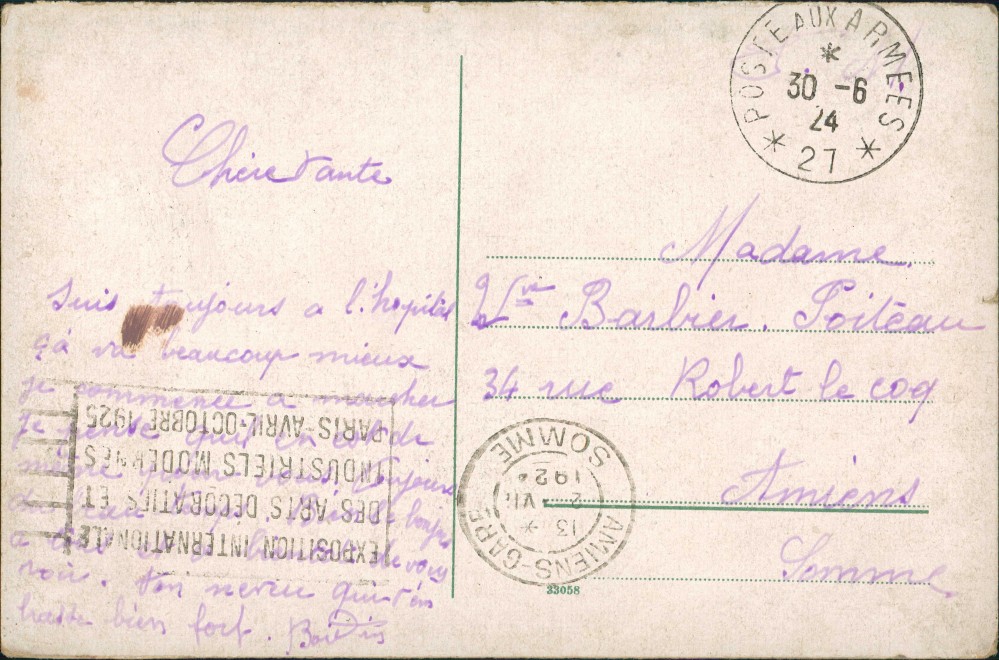 POSTE AUX ARMEES
30 -6
24
27
Chère tante
suis toujours a l'hopital
ça va beaucoup mieux
je commence a marcher
je pense qu'il en est de
même pour vous toujours
bonjour
a
voir. ton neveu qui t'em
brasse bien fort.
Madame
Vve Barbier. Poiteau
34 rue Robert le coq
Amiens
Somme
EXPOSITION INTERNATIONALE
DES ARTS DÉCORATIFS ET
INDUSTRIELS MODERNES
PARIS-AVRIL-OCTOBRE 1925
AMIENS-GARE
13 *
2 VII
1924
SOMME
33058